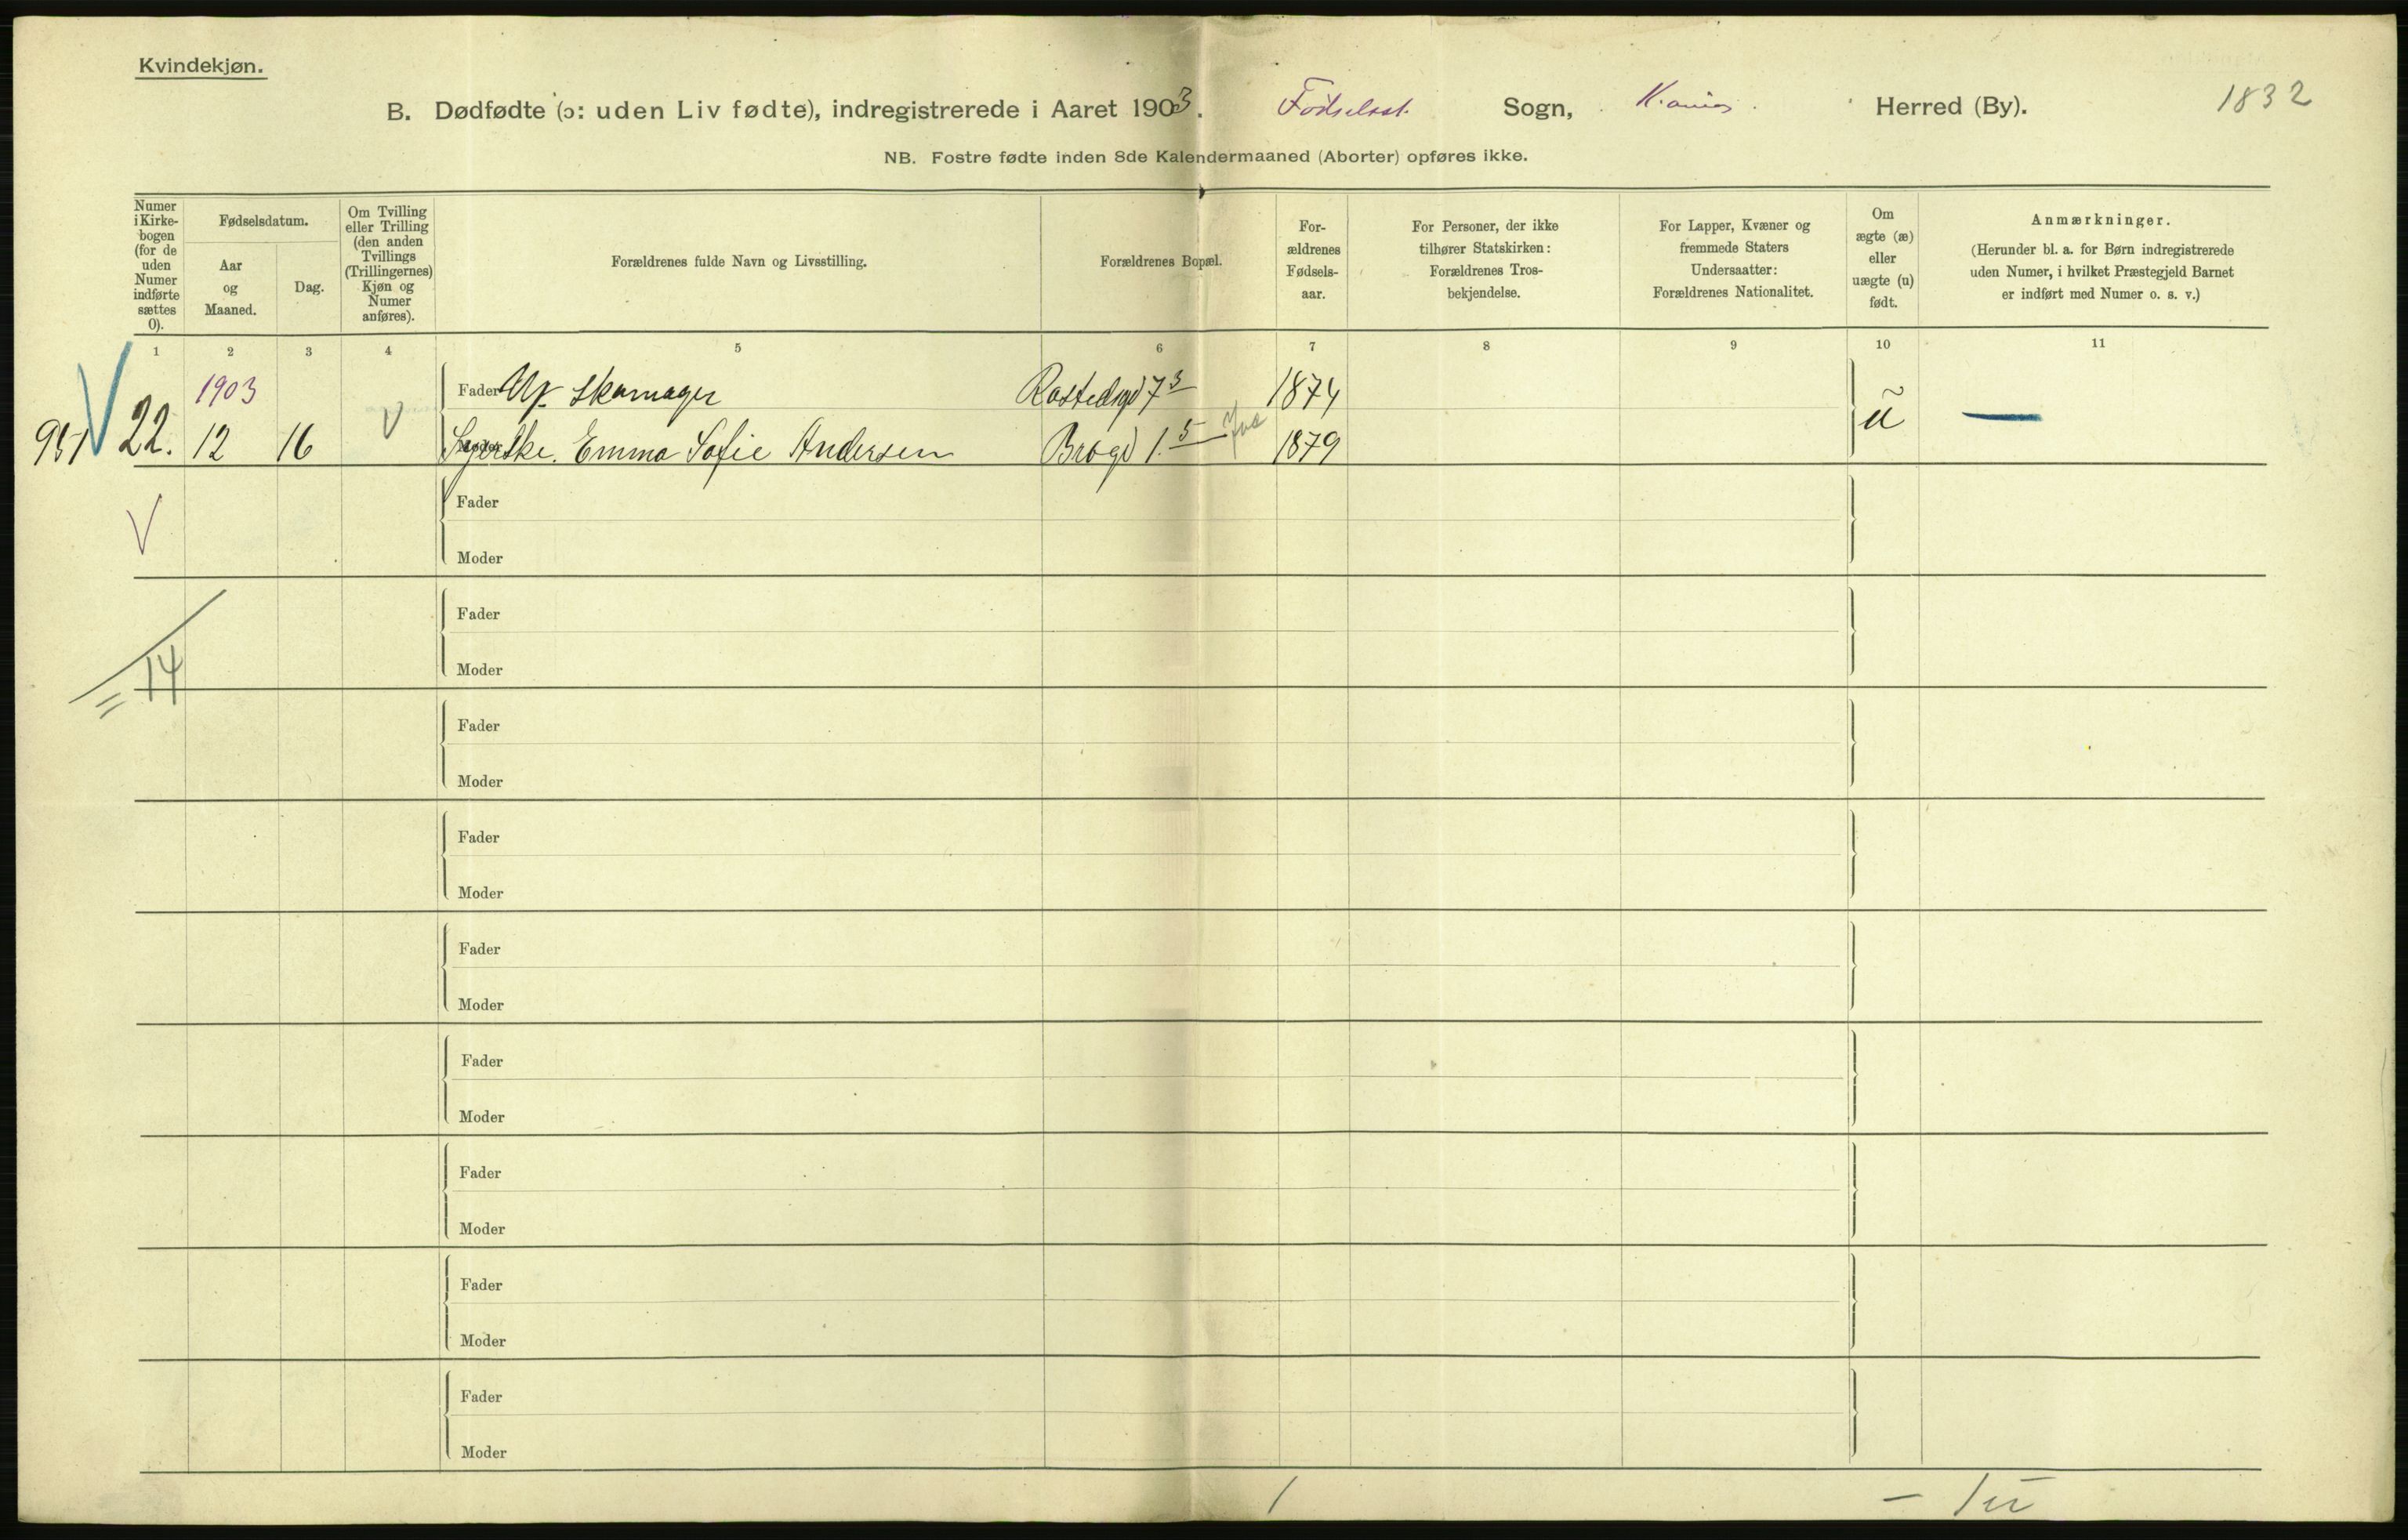 Kvindekjøn.
B. Dødfødte (ɔ: uden Liv fødte), indregistrerede i Aaret 1903. Fødselsst. Sogn, K.ania. Herred (By). 1832
NB. Fostre fødte inden 8de Kalendermaaned (Aborter) opføres ikke.
Numer i Kirke-bogen (for de uden Numer indførte sættes 0).
Fødselsdatum.
Aar og Maaned.
Dag.
Om Tvilling eller Trilling (den anden Tvillings (Trillingernes) Kjøn og Numer anføres).
Forældrenes fulde Navn og Livsstilling.
Forældrenes Bopæl.
For-ældrenes Fødsels-aar.
For Personer, der ikke tilhører Statskirken: Forældrenes Tros-bekjendelse.
For Lapper, Kvæner og fremmede Staters Undersaatter: Forældrenes Nationalitet.
Om ægte (æ) eller uægte (u) født.
Anmærkninger.
(Herunder bl. a. for Børn indregistrerede uden Numer, i hvilket Præstegjeld Barnet er indført med Numer o. s. v.)
1 2 3 4 5 6 7 8 9 10 11
1903 Fader Skomager 7 3 1874
22. 12 16 V Emma Sofie Andersen Brogd 1. 5 1879 u
V Fader
Moder
Fader
= 14 Moder
Fader
Moder
Fader
Moder
Fader
Moder
Fader
Moder
Fader
Moder
Fader
Moder
Fader
Moder
1 – 1 u